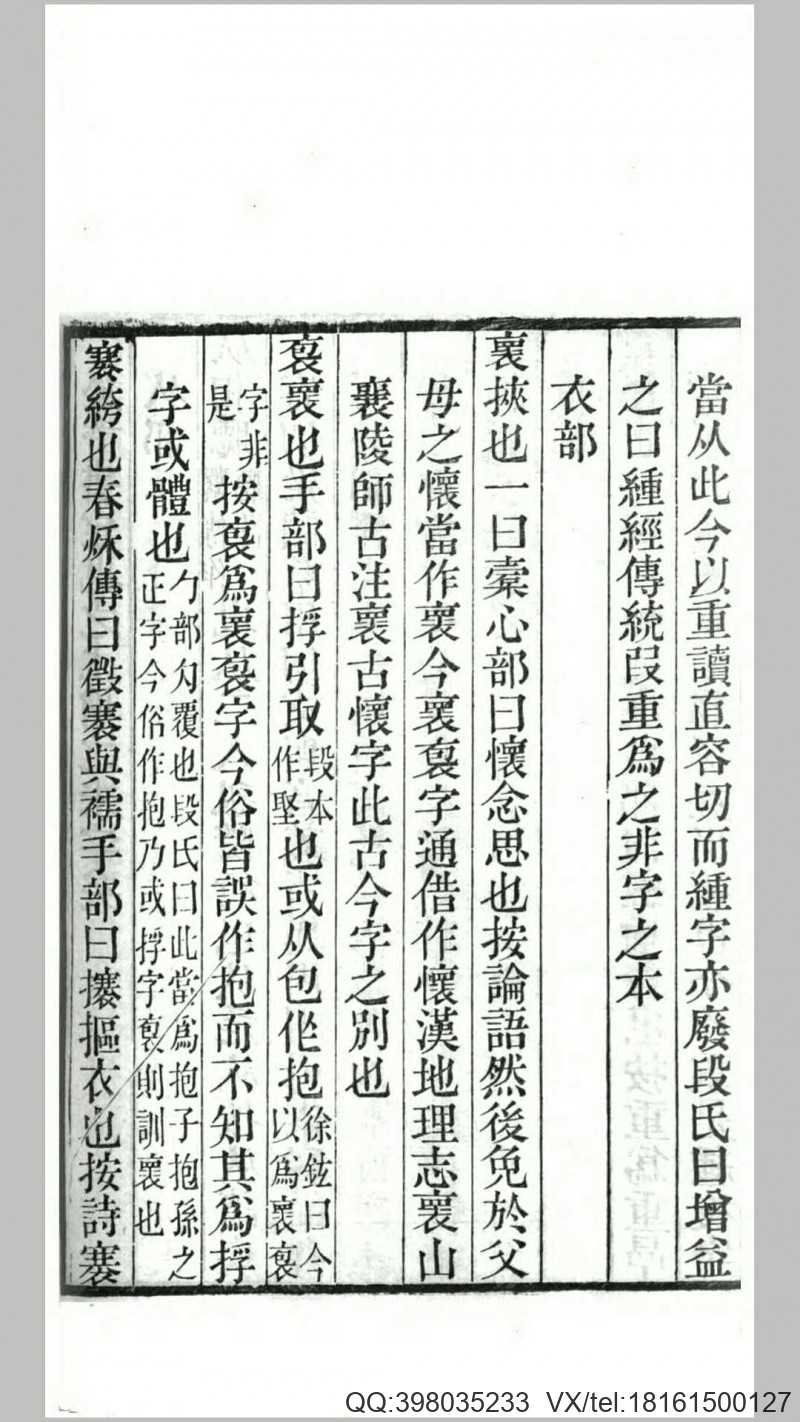 當从此今以重讀直容切而緟字亦廢段氏曰增益
之曰緟經傳統叚重爲之非字之本
衣部
褱挾也一曰橐心部曰懷念思也按論語然後免於父
母之懷當作褱今褱裒字通借作懷漢地理志褱山
襄陵師古注褱古懷字此古今字之別也
袌褱也手部曰捊引取段本作堅也或从包作抱徐鉉曰今以爲褱袌
字非是按袌爲褱袌字今俗皆誤作抱而不知其爲捊
字或體也勹部勽覆也段氏曰此當爲抱子抱孫之正字今俗作抱乃或捊字袌則訓褱也
褰絝也春秌傳曰徵褰與襦手部曰攐摳衣也按詩褰
QQ:398035233 VX/tel:18161500127